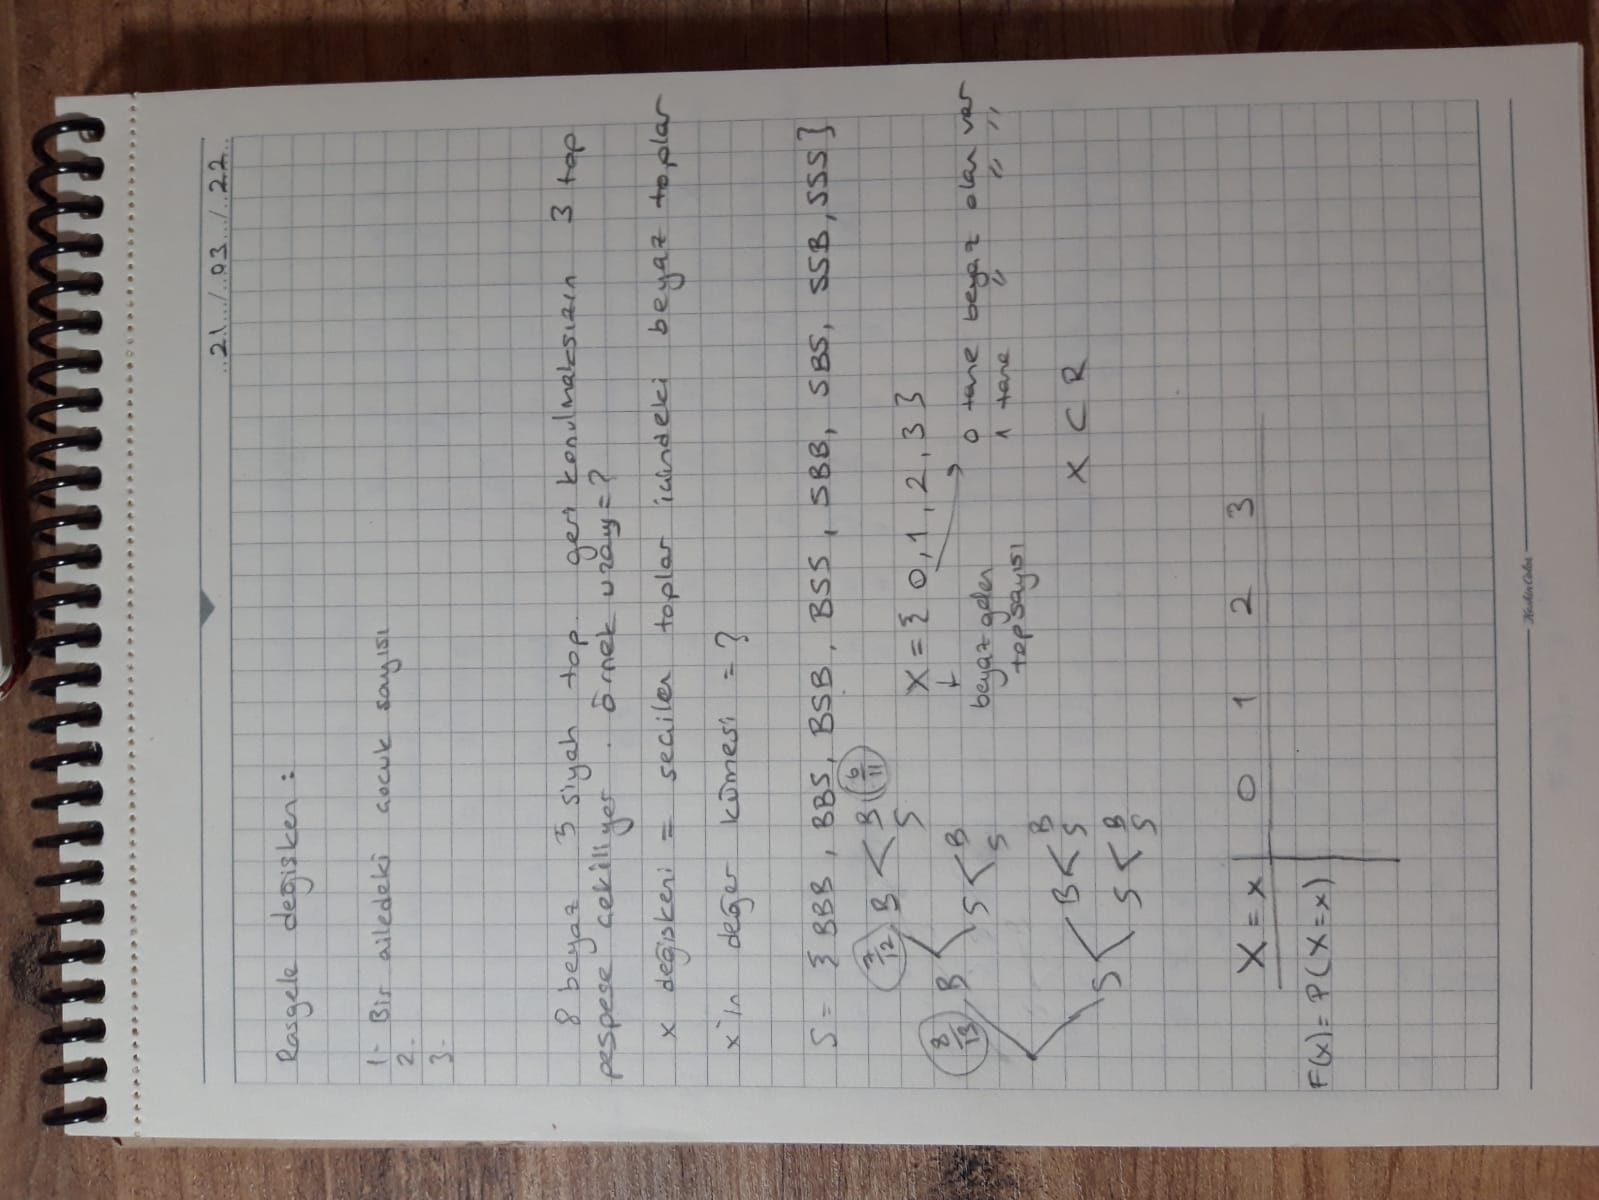 21 / 03 / 22
Rasgele değişken:
1- Bir ailedeki çocuk sayısı
2-
3-
8 beyaz 5 siyah top. geri konulmaksızın 3 top
peşpeşe çekiliyor. örnek uzay=?
x değişkeni = seçilen toplar içindeki beyaz toplar
x'in değer kümesi = ?
S = { BBB, BBS, BSB, BSS, SBB, SBS, SSB, SSS}
8/13 B 7/12 B B 6/11
S
S B
S
S B B
S
S B
S
X = { 0, 1, 2, 3 }
beyaz gelen
top sayısı
0 tane beyaz olan var
1 tane " " "
X ⊂ R
X = x 0 1 2 3
F(x) = P(X=x)